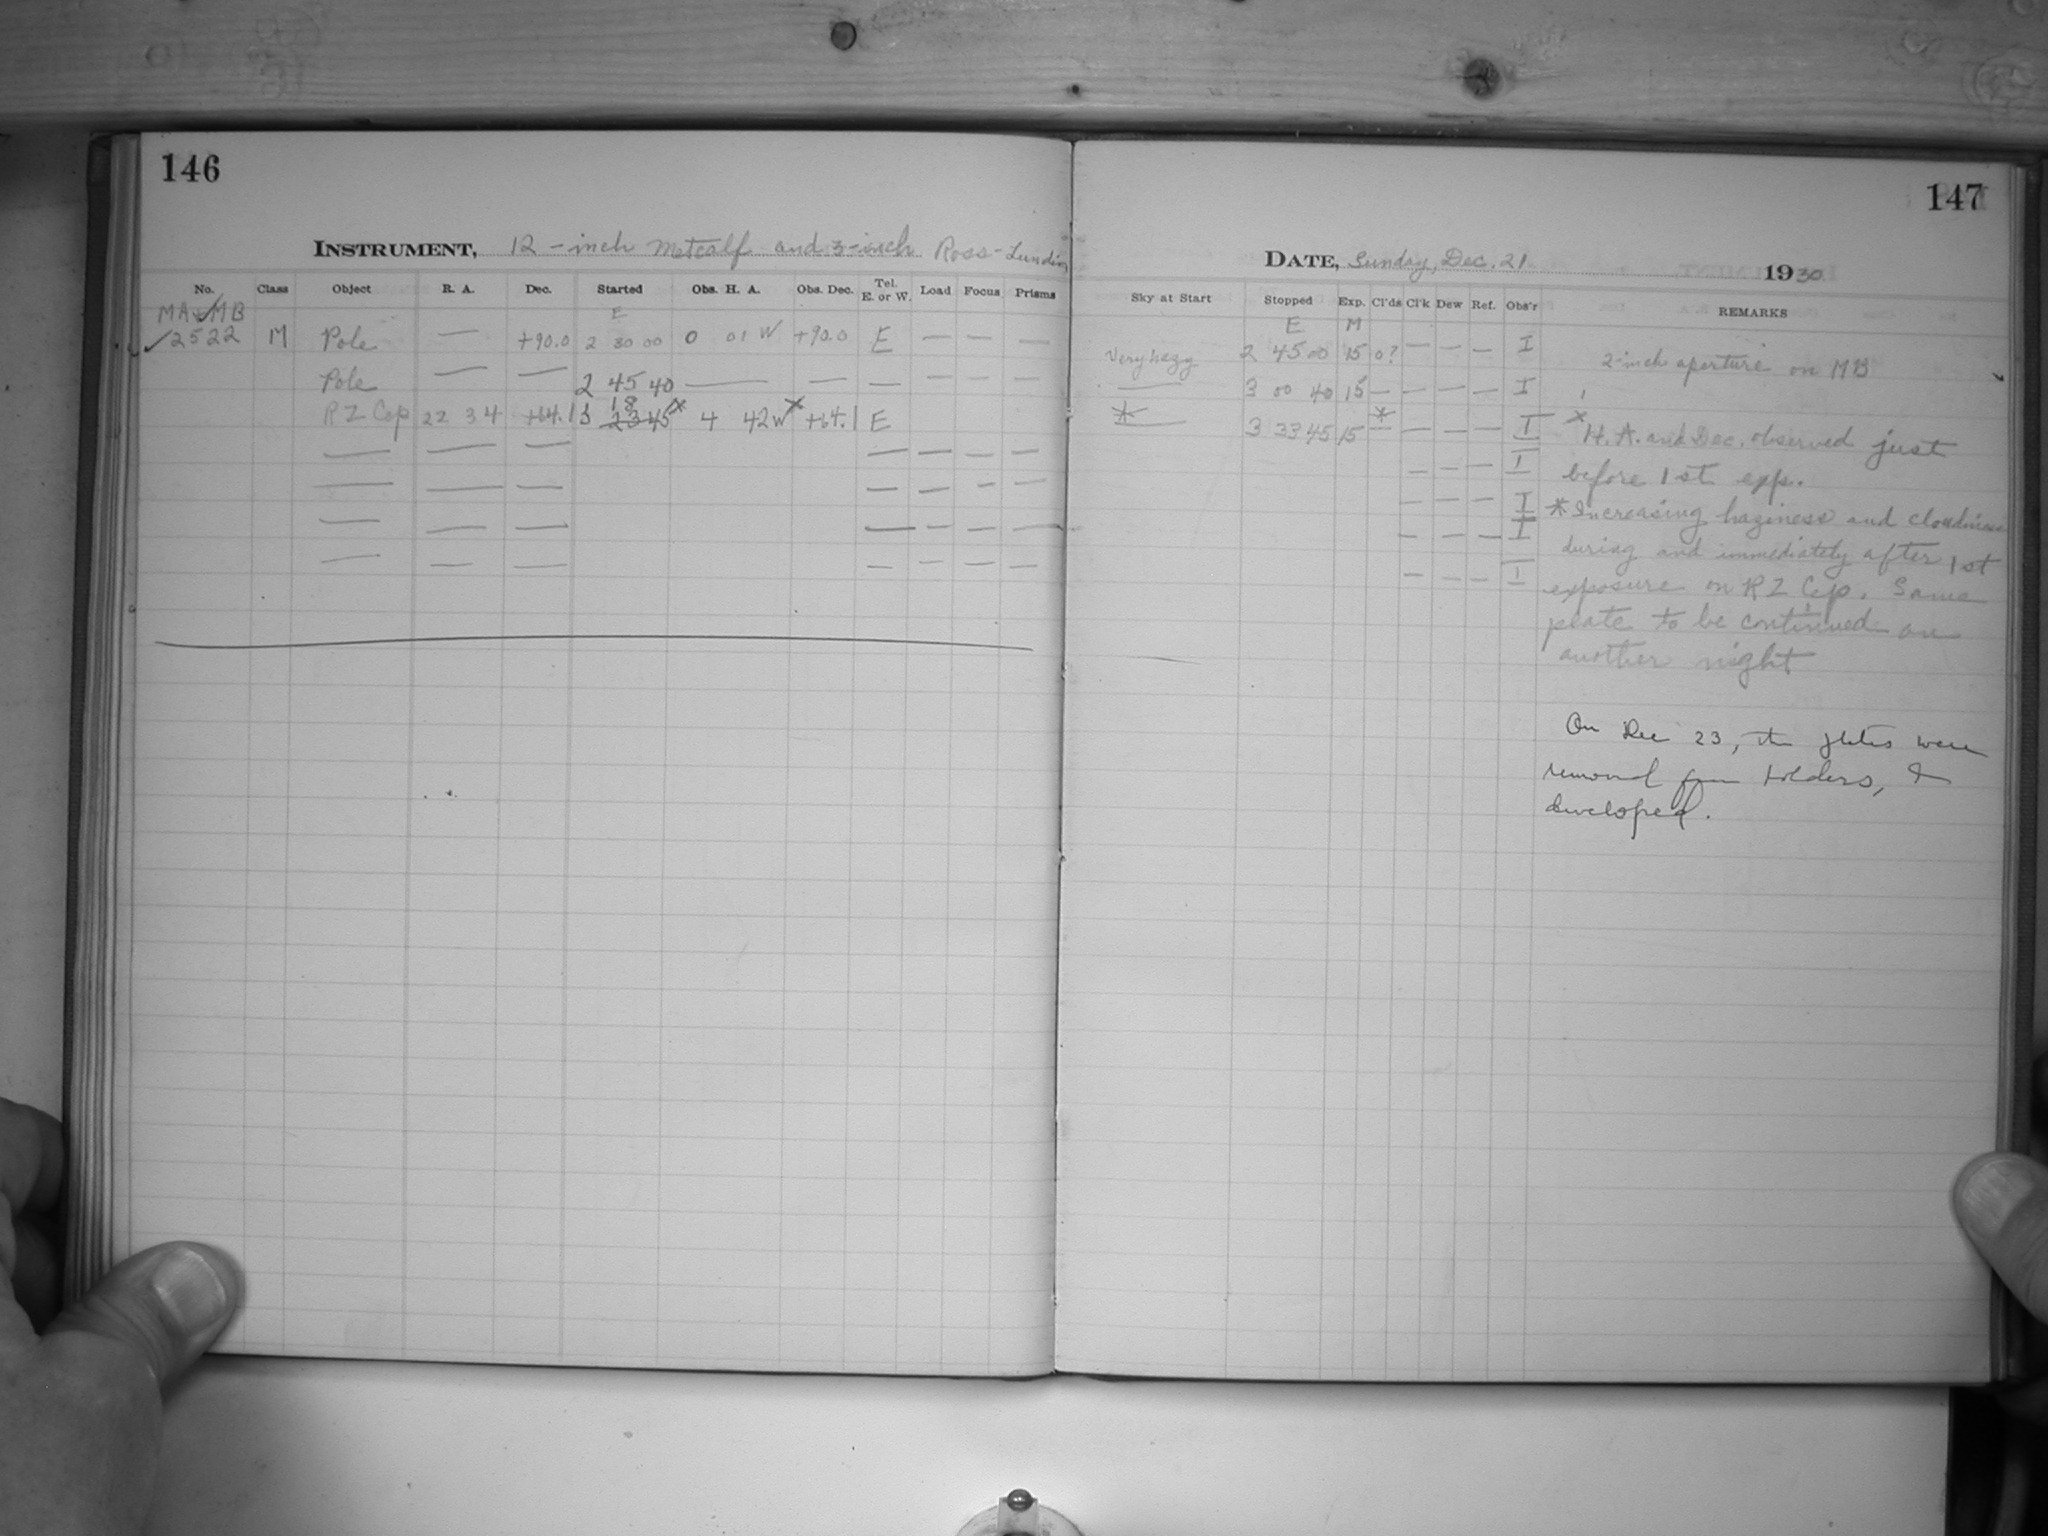 146
INSTRUMENT, 12-inch Metcalf and 3-inch Ross-Lundin
No. Class Object R. A. Dec. Started Obs. H. A. Obs. Dec. Tel. E. or W. Load Focus Prisms
MA+MB E
2522 M Pole — +90.0 2 30 00 0 01 W +90.0 E — — —
Pole — — 2 45 40 — — — — — —
18
RZ Cep 22 34 +64.1 3 23 45 x 4 42 W x +64.1 E
— — — — — — —
— — — — — — —
— — — — — — —
— — — — — — —
147
DATE, Sunday, Dec. 21 1930
Sky at Start Stopped Exp. Cl'ds Cl'k Dew Ref. Obs'r REMARKS
E M
Very hazy 2 45 00 15 0? — — — I 2-inch aperture on MB
— 3 00 40 15 — — — — I
* 3 33 45 15 * — — — I x H. A. and Dec. observed just
— — — I before 1st exp.
— — — I * Increasing haziness and cloudiness
— — — I during and immediately after 1st
— — — I exposure on RZ Cep. Same
plate to be continued on
another night
On Dec 23, the plates were
removed from holders, &
developed.